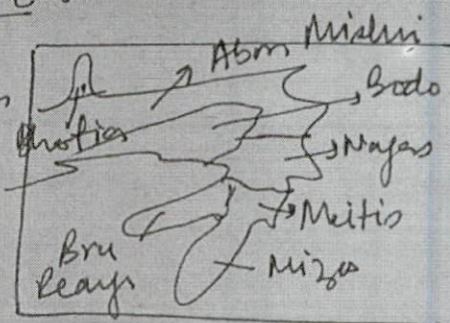 Abor Mishmi
Bodo
Bhotias
Nagas
Meitis
Bru
Reangs
Mizos